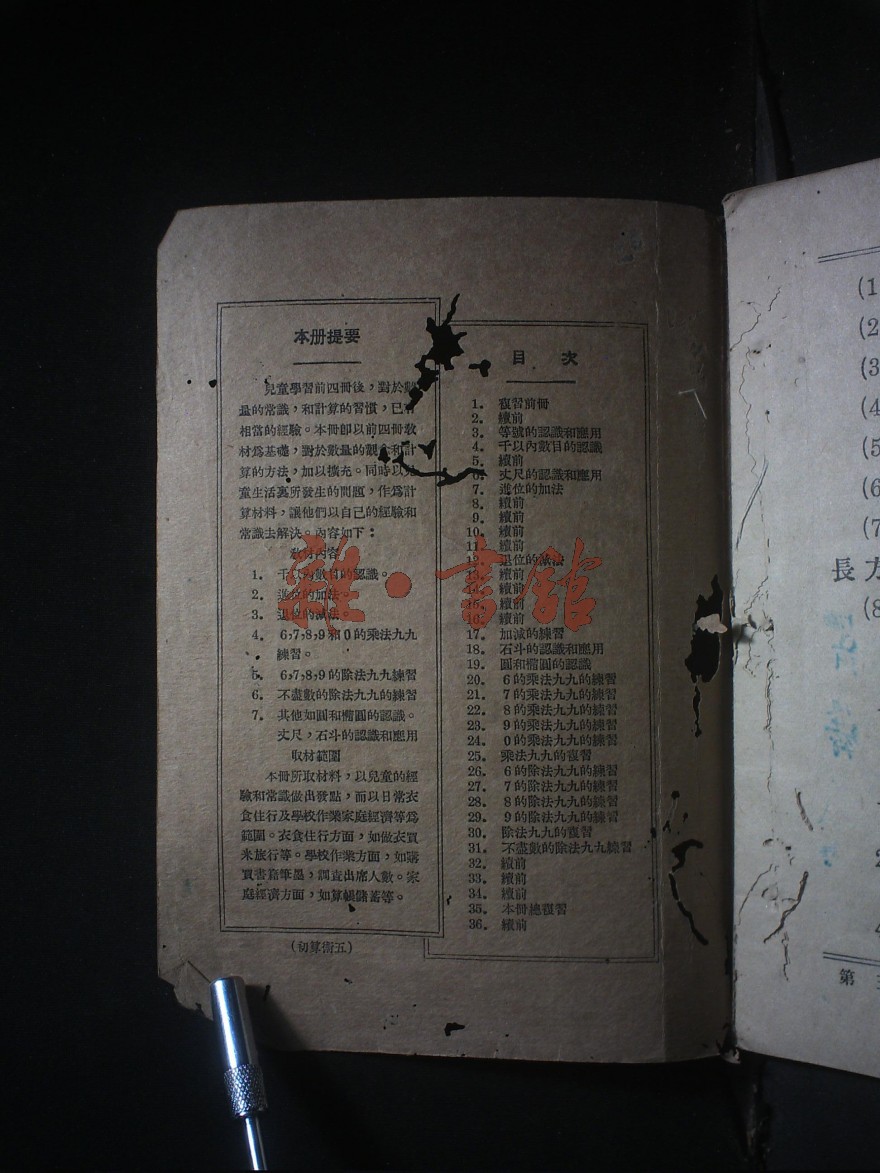 本册提要
兒童學習前四冊後，對於數
量的常識，和計算的習慣，已有
相當的經驗。本冊即以前四冊敎
材爲基礎，對於數量的觀念和計
算的方法，加以擴充。同時以兒
童生活裏所發生的問題，作爲計
算材料，讓他們以自己的經驗和
常識去解決。內容如下：
敎材內容
1. 千以內數目的認識。
2. 進位的加法。
3. 退位的減法。
4. 6,7,8,9和0的乘法九九
練習。
5. 6,7,8,9的除法九九練習
6. 不盡數的除法九九的練習
7. 其他如圓和橢圓的認識。
丈尺，石斗的認識和應用
取材範圍
本冊所取材料，以兒童的經
驗和常識做出發點，而以日常衣
食住行及學校作業家庭經濟等爲
範圍。衣食住行方面，如做衣買
米旅行等。學校作業方面，如購
買書籍筆墨，調査出席人數。家
庭經濟方面，如算帳儲蓄等。
(初算術五)
目 次
1. 復習前冊
2. 續前
3. 等號的認識和應用
4. 千以內數目的認識
5. 續前
6. 丈尺的認識和應用
7. 進位的加法
8. 續前
9. 續前
10. 續前
11. 續前
12. 退位的減法
13. 續前
14. 續前
15. 續前
16. 續前
17. 加減的練習
18. 石斗的認識和應用
19. 圓和橢圓的認識
20. 6的乘法九九的練習
21. 7的乘法九九的練習
22. 8的乘法九九的練習
23. 9的乘法九九的練習
24. 0的乘法九九的練習
25. 乘法九九的復習
26. 6的除法九九的練習
27. 7的除法九九的練習
28. 8的除法九九的練習
29. 9的除法九九的練習
30. 除法九九的復習
31. 不盡數的除法九九練習
32. 續前
33. 續前
34. 續前
35. 本冊總復習
36. 續前
雜·書館
(1
(2
(3
(4
(5
(6
(7
長方
(8
第